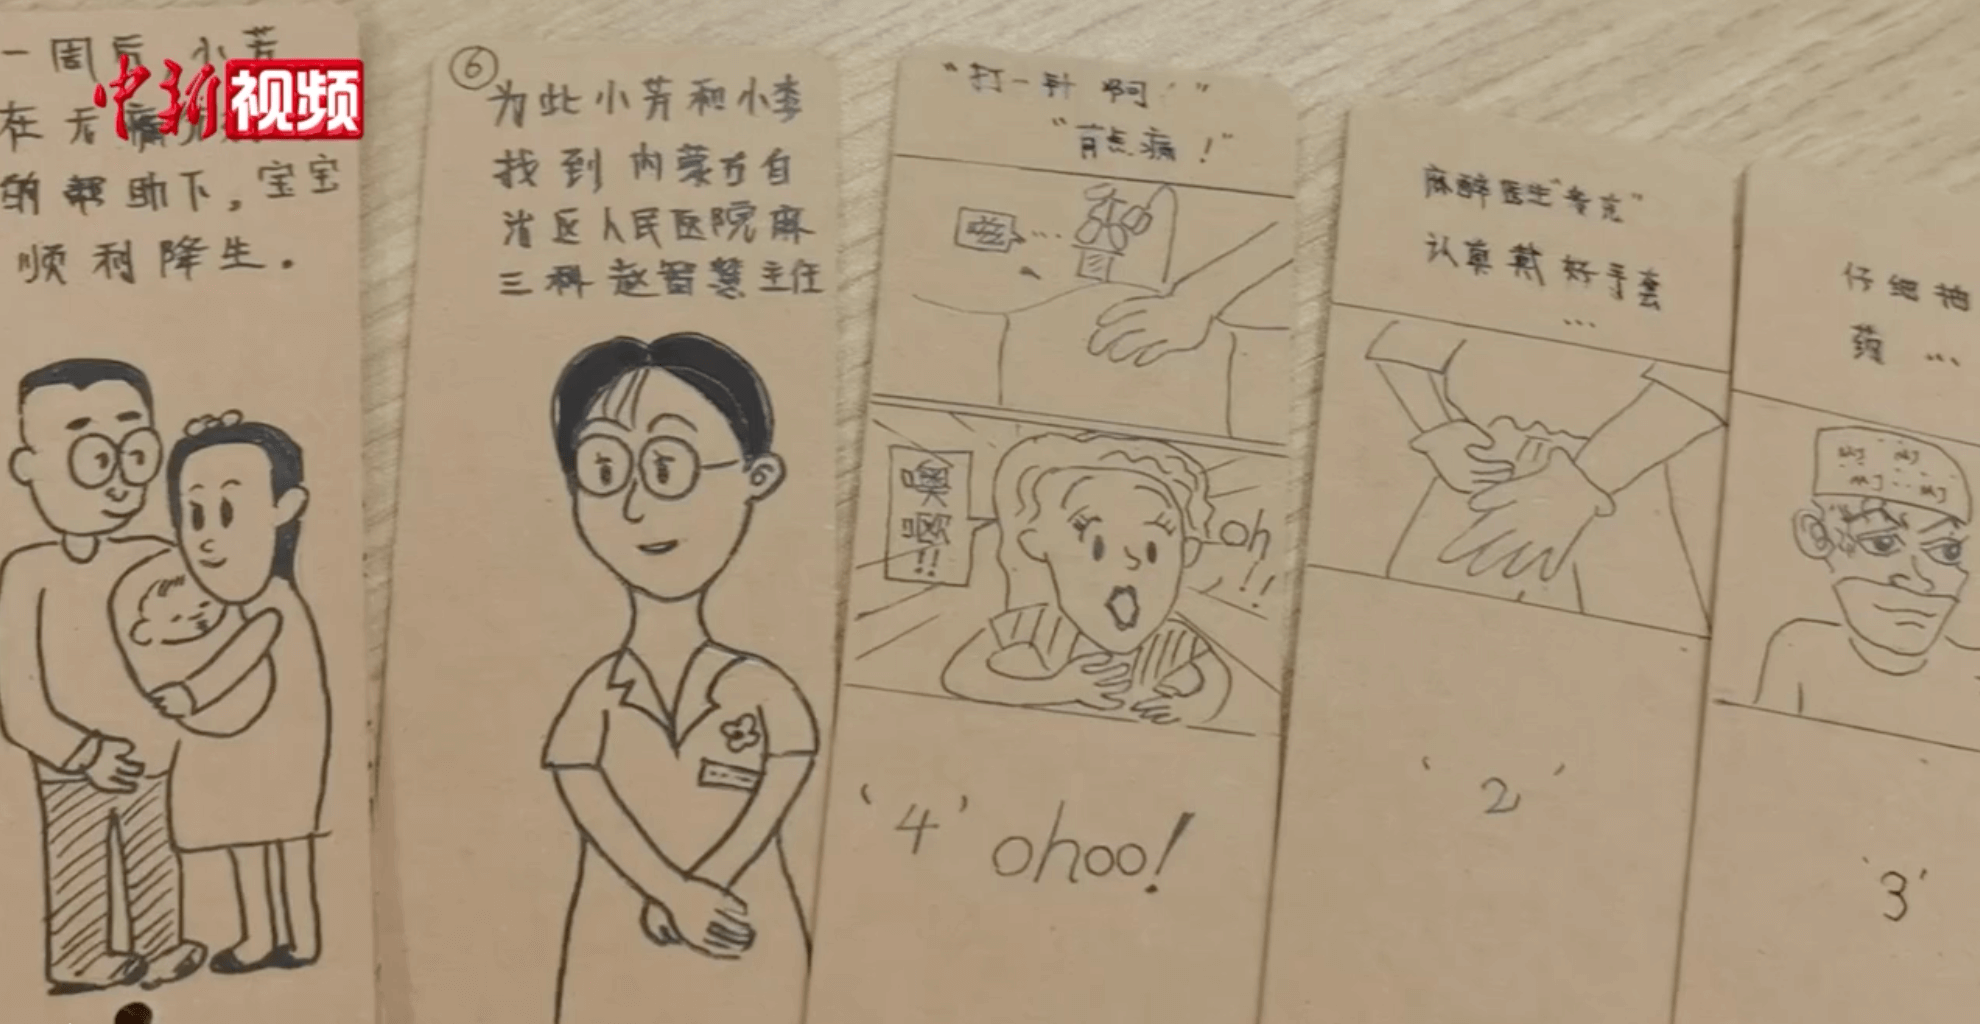 一周后,小芳
在无痛分
的帮助下,宝宝
顺利降生.
中新视频
⑥
为此小芳和小李
找到内蒙古自
治区人民医院麻
三科赵智慧主任
"打一针 啊!"
"有点痛!"
嗞
噢
!!
oh
!!
'4' ohoo!
麻醉医生"麦克"
认真戴好手套
...
'2'
仔细抽
药 ...
'3'